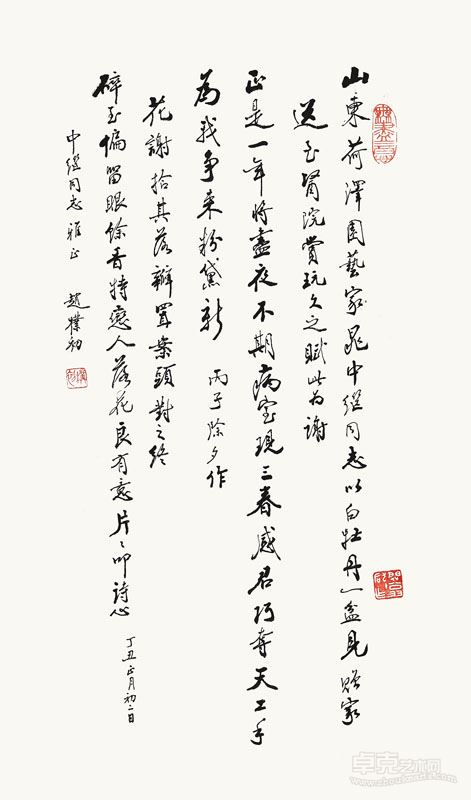 山東荷澤園藝家晁中繼同志以白牡丹一盆見贈家
送至醫院賞玩久之賦此为謝
正是一年将盡夜不期病室現三春感君巧奪天工手
為我爭来粉黛新 丙子除夕作
花謝拾其落瓣置案頭對之終
碎玉偏留眼餘香特戀人落花良有意片〻叩詩心
丁丑正月初二日
中繼同志雅正 趙樸初
無盡意
卓克艺术网